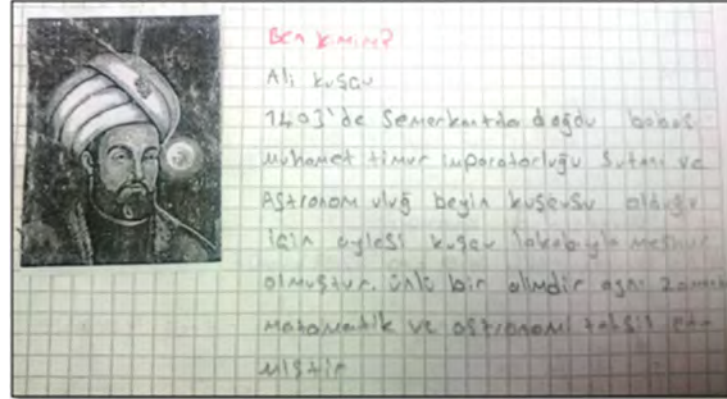 Ben kimim?
Ali kuşçu
1403'de Semerkantda doğdu babas
muhamet timur imparatorluğu Sutanı ve
Astronom uluğ beyin kuşçusu olduğu
için aylesi kuşçu lakabıyla meşhur
olmuştur. ünlü bir alimdir aynı zaman
matamatik ve astronomi tahsil et
miştir